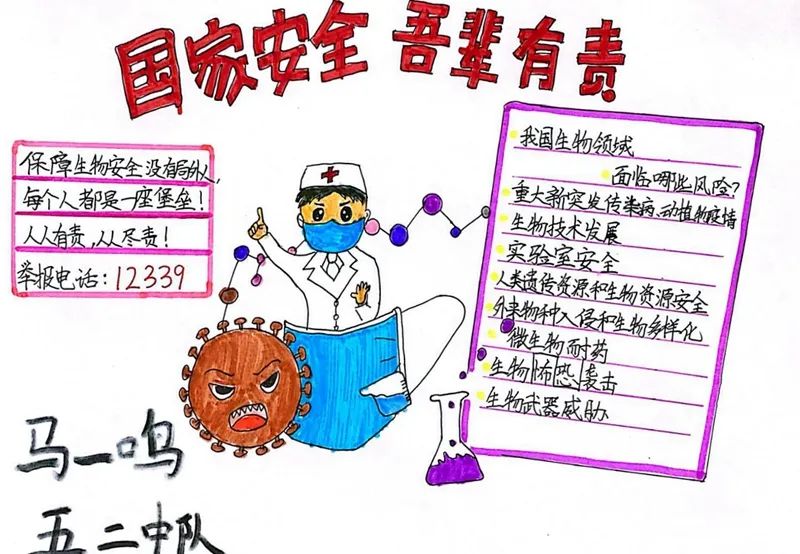 国家安全 吾辈有责
保障生物安全没有局外人,
每个人都是一座堡垒!
人人有责,人人尽责!
举报电话:12339
我国生物领域
面临哪些风险?
重大新突发传染病、动植物疫情
生物技术发展
实验室安全
人类遗传资源和生物资源安全
外来物种入侵和生物多样化
微生物耐药
生物怖恐袭击
生物武器威胁
马一鸣
五二中队